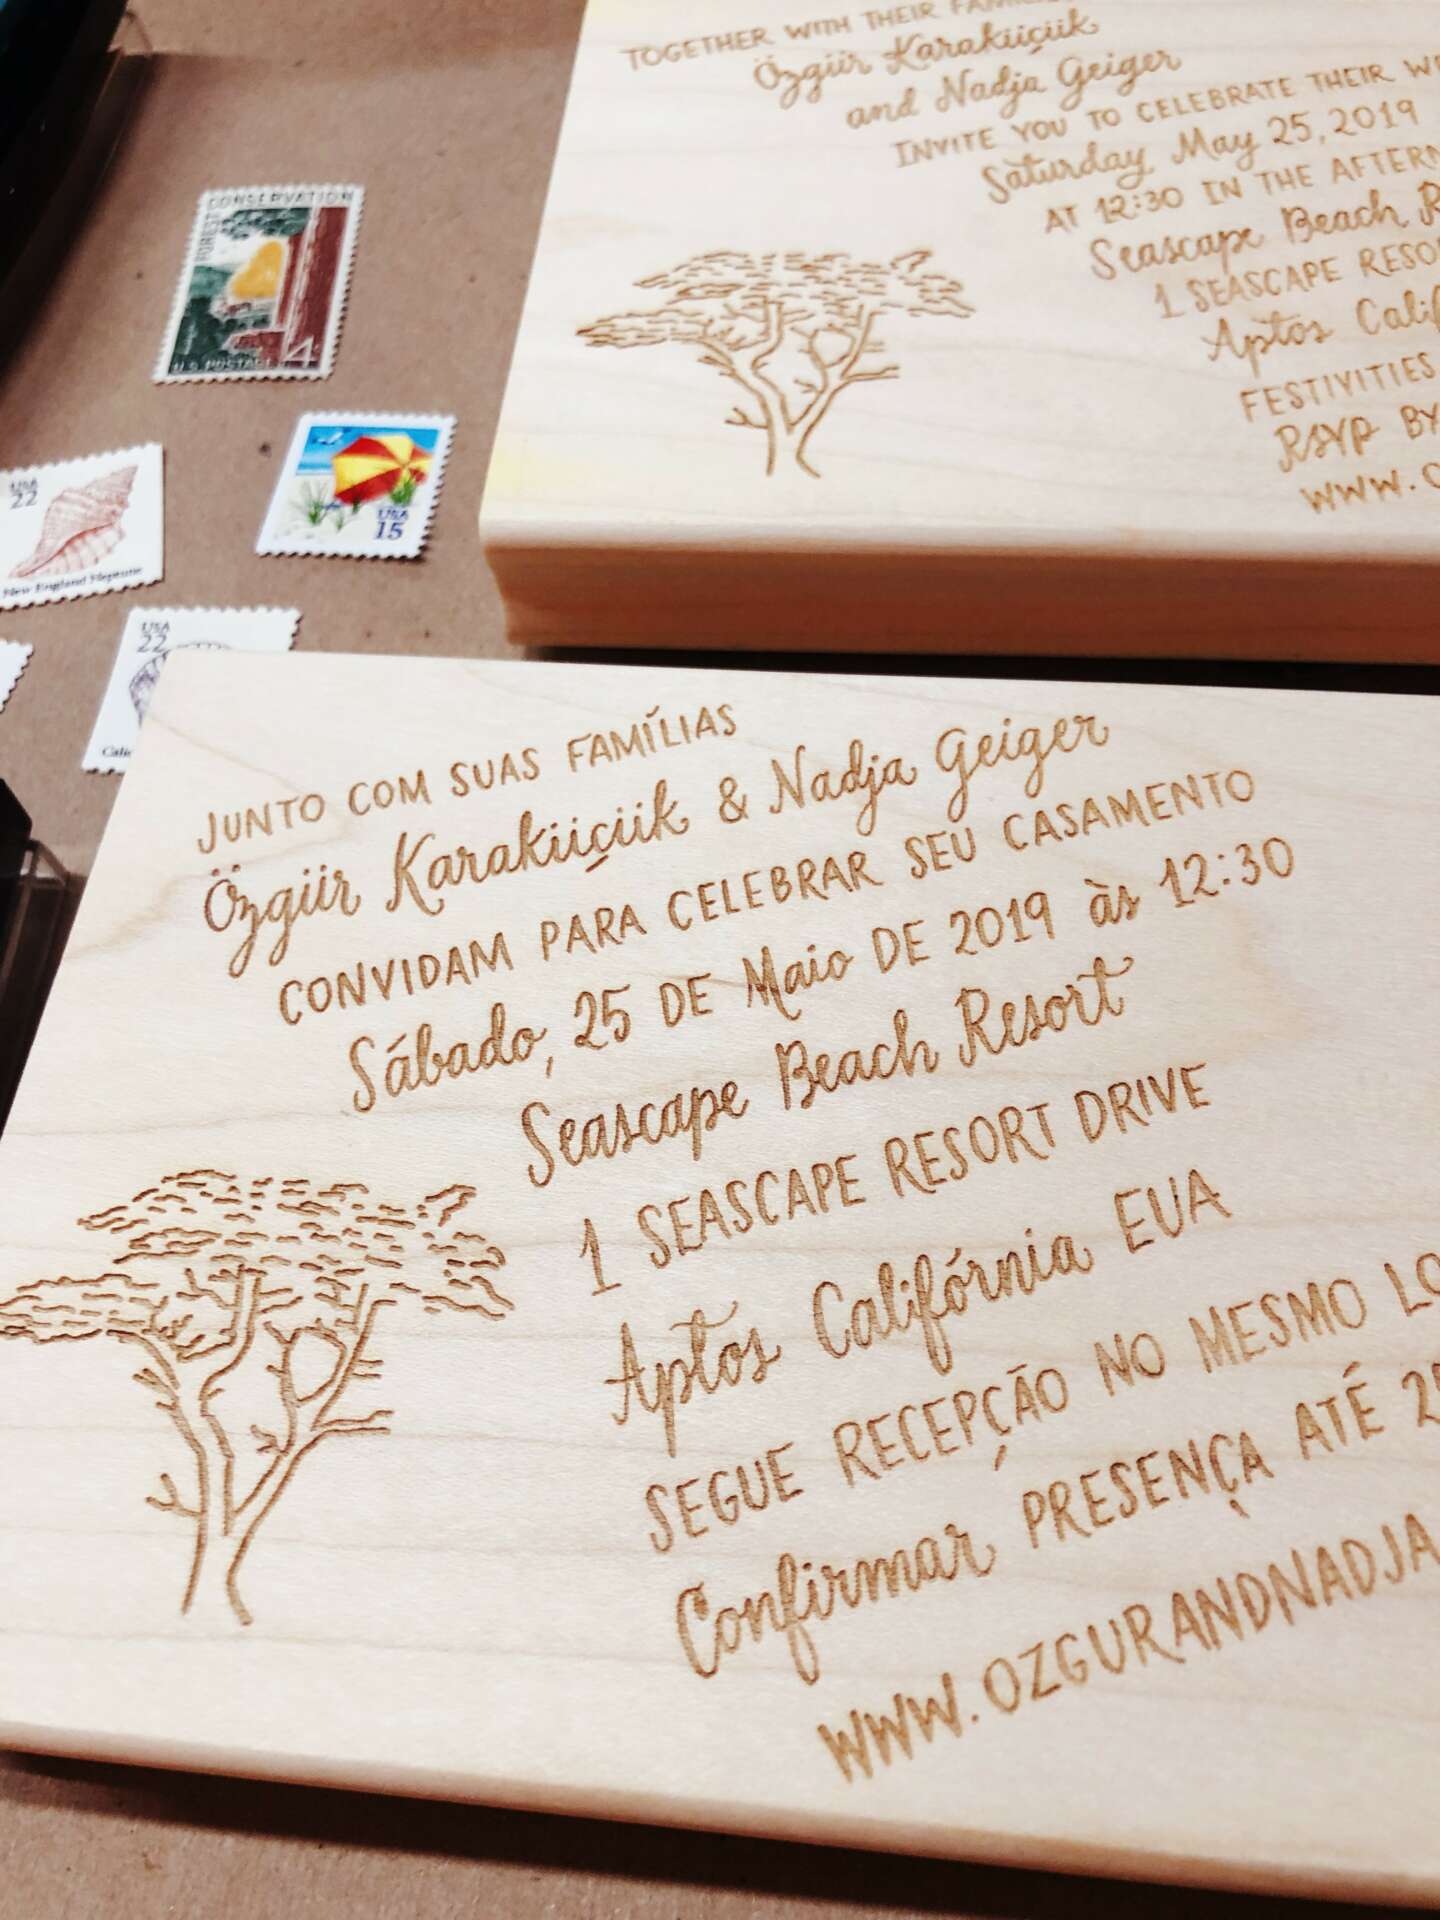 TOGETHER WITH THEIR
Özgür Karaküçük
and Nadja Geiger
INVITE YOU TO CELEBRATE THEIR
Saturday May 25, 2019
AT 12:30 IN THE
Seascape Beach
1 SEASCAPE
Aptos
FESTIVITIES
RSVP BY
WWW.
FOREST CONSERVATION
U.S. POSTAGE 4
USA
15
USA
22
New England Neptune
USA
22
JUNTO COM SUAS FAMÍLIAS
Özgür Karaküçük & Nadja Geiger
CONVIDAM PARA CELEBRAR SEU CASAMENTO
Sábado, 25 DE Maio DE 2019 às 12:30
Seascape Beach Resort
1 SEASCAPE RESORT DRIVE
Aptos Califórnia EUA
SEGUE RECEPÇÃO NO MESMO
Confirmar PRESENÇA ATÉ
WWW.OZGURANDNADJA